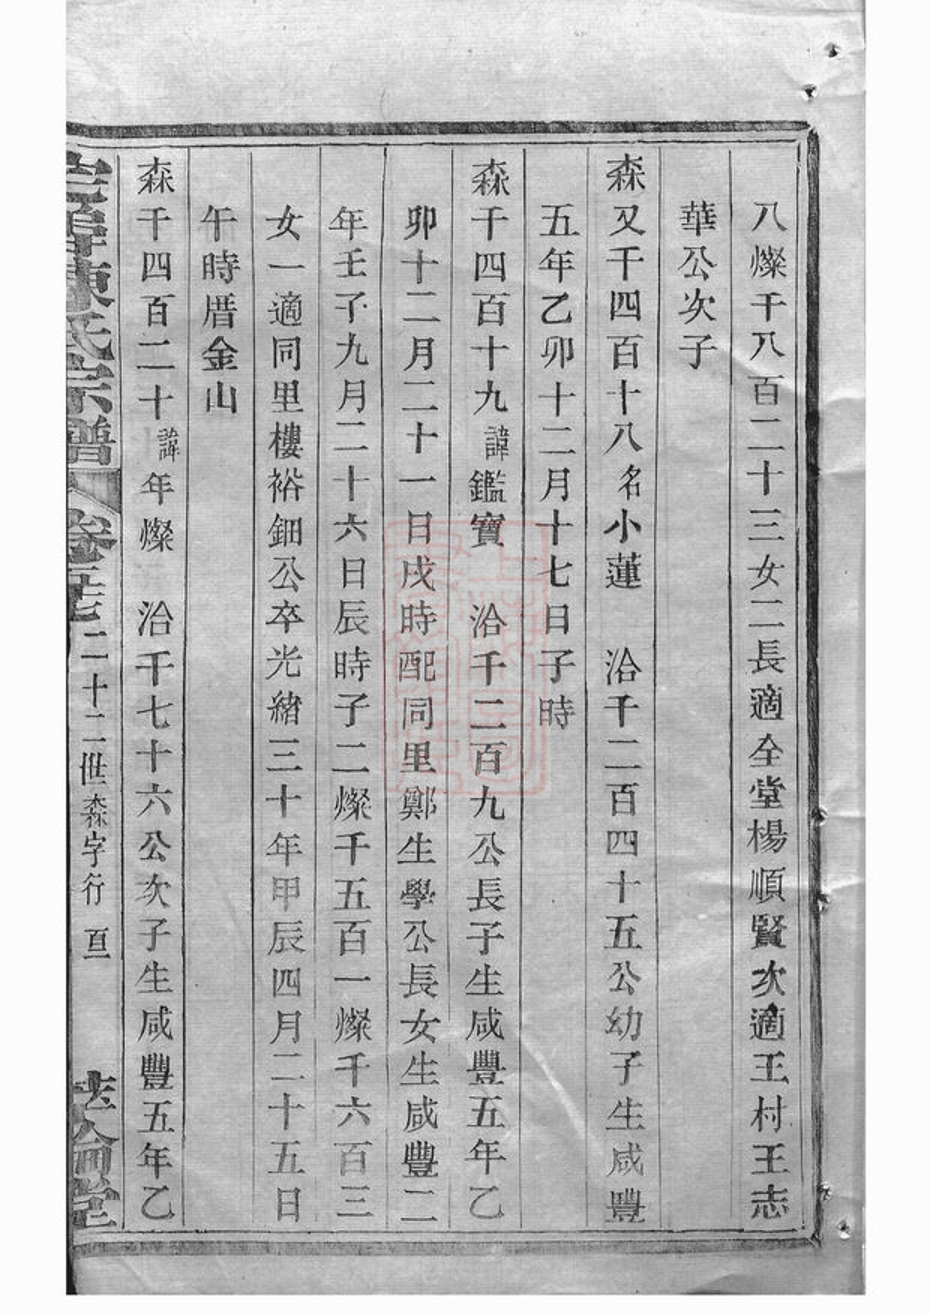 八燦千八百二十三女二長適全堂楊順賢次適王村王志
華公次子
森又千四百十八名小蓮　洽千二百四十五公幼子生咸豐
五年乙卯十二月十七日子時
森千四百十九諱鑑寶　洽千二百九公長子生咸豐五年乙
卯十二月二十一日戌時配同里鄭生學公長女生咸豐二
年壬子九月二十六日辰時子二燦千五百一燦千六百三
女一適同里樓裕鈿公卒光緒三十年甲辰四月二十五日
午時厝金山
森千四百二十諱年燦　洽千七十六公次子生咸豐五年乙
陳氏宗譜　卷　二十二世森字行　亘　倫堂